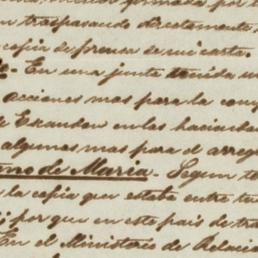 formada, por
traspasando directamente
copia de prensa de mi carta.
En una junta tenida
acciones mas para la com
Escandon en las haciendas
algunas mas para el arreg
mo de Maria. Segun te
la copia que estaba entre tu
por que en este pais de tra
En el Ministerio de Relacio